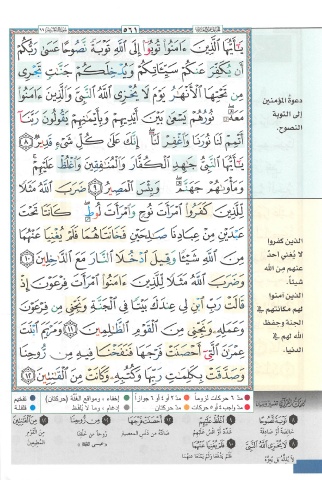 ٥٦١
يَـٰٓأَيُّهَا ٱلَّذِينَ ءَامَنُوا۟ تُوبُوٓا۟ إِلَى ٱللَّهِ تَوْبَةً نَّصُوحًا عَسَىٰ رَبُّكُمْ
أَن يُكَفِّرَ عَنكُمْ سَيِّـَٔاتِكُمْ وَيُدْخِلَكُمْ جَنَّـٰتٍ تَجْرِى
مِن تَحْتِهَا ٱلْأَنْهَـٰرُ يَوْمَ لَا يُخْزِى ٱللَّهُ ٱلنَّبِىَّ وَٱلَّذِينَ ءَامَنُوا۟
مَعَهُۥ ۖ نُورُهُمْ يَسْعَىٰ بَيْنَ أَيْدِيهِمْ وَبِأَيْمَـٰنِهِمْ يَقُولُونَ رَبَّنَآ
أَتْمِمْ لَنَا نُورَنَا وَٱغْفِرْ لَنَآ ۖ إِنَّكَ عَلَىٰ كُلِّ شَىْءٍ قَدِيرٌ ٨
يَـٰٓأَيُّهَا ٱلنَّبِىُّ جَـٰهِدِ ٱلْكُفَّارَ وَٱلْمُنَـٰفِقِينَ وَٱغْلُظْ عَلَيْهِمْ ۚ
وَمَأْوَىٰهُمْ جَهَنَّمُ ۖ وَبِئْسَ ٱلْمَصِيرُ ٩ ضَرَبَ ٱللَّهُ مَثَلًا
لِّلَّذِينَ كَفَرُوا۟ ٱمْرَأَتَ نُوحٍ وَٱمْرَأَتَ لُوطٍ ۖ كَانَتَا تَحْتَ
عَبْدَيْنِ مِنْ عِبَادِنَا صَـٰلِحَيْنِ فَخَانَتَاهُمَا فَلَمْ يُغْنِيَا عَنْهُمَا
مِنَ ٱللَّهِ شَيْـًٔا وَقِيلَ ٱدْخُلَا ٱلنَّارَ مَعَ ٱلدَّٰخِلِينَ ١٠
وَضَرَبَ ٱللَّهُ مَثَلًا لِّلَّذِينَ ءَامَنُوا۟ ٱمْرَأَتَ فِرْعَوْنَ إِذْ
قَالَتْ رَبِّ ٱبْنِ لِى عِندَكَ بَيْتًا فِى ٱلْجَنَّةِ وَنَجِّنِى مِن فِرْعَوْنَ
وَعَمَلِهِۦ وَنَجِّنِى مِنَ ٱلْقَوْمِ ٱلظَّـٰلِمِينَ ١١ وَمَرْيَمَ ٱبْنَتَ
عِمْرَٰنَ ٱلَّتِىٓ أَحْصَنَتْ فَرْجَهَا فَنَفَخْنَا فِيهِ مِن رُّوحِنَا
وَصَدَّقَتْ بِكَلِمَـٰتِ رَبِّهَا وَكُتُبِهِۦ وَكَانَتْ مِنَ ٱلْقَـٰنِتِينَ ١٢
دعوة المؤمنين
إلى التوبة
النصوح.
الذين كفروا
لا يُغني أحدٌ
عنهم من الله
شيئاً.
الذين آمنوا
لهم مكانتهم في
الجنة وحفظ
الله لهم في
الدنيا.
مدّ ٦ حركات لزوماً
مدّ ٢ أو ٤ أو ٦ جوازاً
إخفاء، ومواقع الغُنَّة (حركتان)
تفخيم
مدّ واجب ٤ أو ٥ حركات
مدّ حركتان
إدغام، وما لا يُلفظ
قلقلة